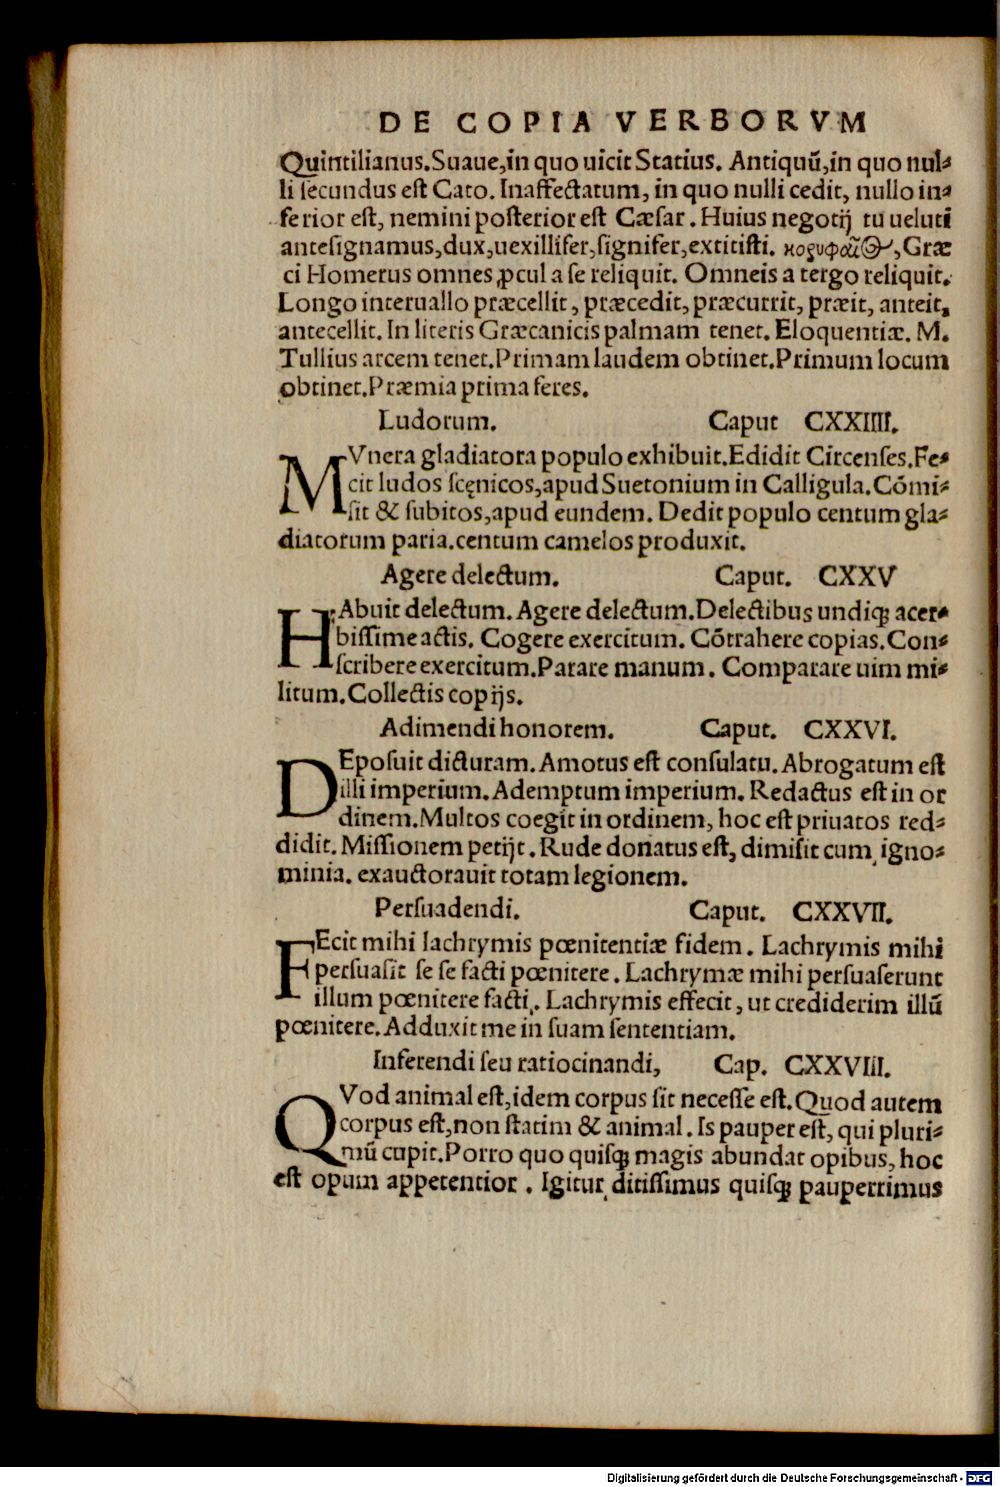 DE COPIA VERBORVM
Quintilianus.Suaue,in quo uicit Statius. Antiquũ,in quo nul-
li ſecundus eſt Cato. Inaffectatum, in quo nulli cedit, nullo in-
ferior eſt, nemini poſterior eſt Cæſar. Huius negotij tu ueluti
anteſignamus,dux,uexillifer,ſignifer,extitiſti. κορυφαῖος,Græ
ci Homerus omnes ꝓcul a ſe reliquit. Omneis a tergo reliquit.
Longo interuallo præcellit, præcedit, præcurrit, præit, anteit,
antecellit. In literis Græcanicis palmam tenet. Eloquentiæ. M.
Tullius arcem tenet.Primam laudem obtinet.Primum locum
obtinet.Præmia prima feres.
Ludorum. Caput CXXIIII.
MVnera gladiatora populo exhibuit.Edidit Circenſes.Fe-
cit ludos ſcęnicos,apud Suetonium in Calligula.Cõmi-
ſit & ſubitos,apud eundem. Dedit populo centum gla-
diatorum paria.centum camelos produxit.
Agere delectum. Caput. CXXV
HAbuit delectum. Agere delectum.Delectibus undiqꝫ acer-
biſſime actis. Cogere exercitum. Cõtrahere copias.Con-
ſcribere exercitum.Parare manum. Comparare uim mi-
litum.Collectis copijs.
Adimendi honorem. Caput. CXXVI.
DEpoſuit dicturam. Amotus eſt conſulatu. Abrogatum eſt
illi imperium. Ademptum imperium. Redactus eſt in or
dinem.Multos coegit in ordinem, hoc eſt priuatos red-
didit. Miſſionem petijt. Rude donatus eſt, dimiſit cum igno-
minia. exauctorauit totam legionem.
Perſuadendi. Caput. CXXVII.
FEcit mihi lachrymis pœnitentiæ fidem. Lachrymis mihi
perſuaſit ſe ſe facti pœnitere. Lachrymæ mihi perſuaſerunt
illum pœnitere facti. Lachrymis effecit, ut crediderim illũ
pœnitere. Adduxit me in ſuam ſententiam.
Inferendi ſeu ratiocinandi, Cap. CXXVIII.
QVod animal eſt,idem corpus ſit neceſſe eſt.Quod autem
corpus eſt,non ſtatim & animal. Is pauper eſt, qui pluri-
mũ cupit.Porro quo quiſqꝫ magis abundat opibus, hoc
eſt opum appetentior. Igitur ditiſſimus quiſqꝫ pauperrimus
Digitalisierung gefördert durch die Deutsche Forschungsgemeinschaft - DFG